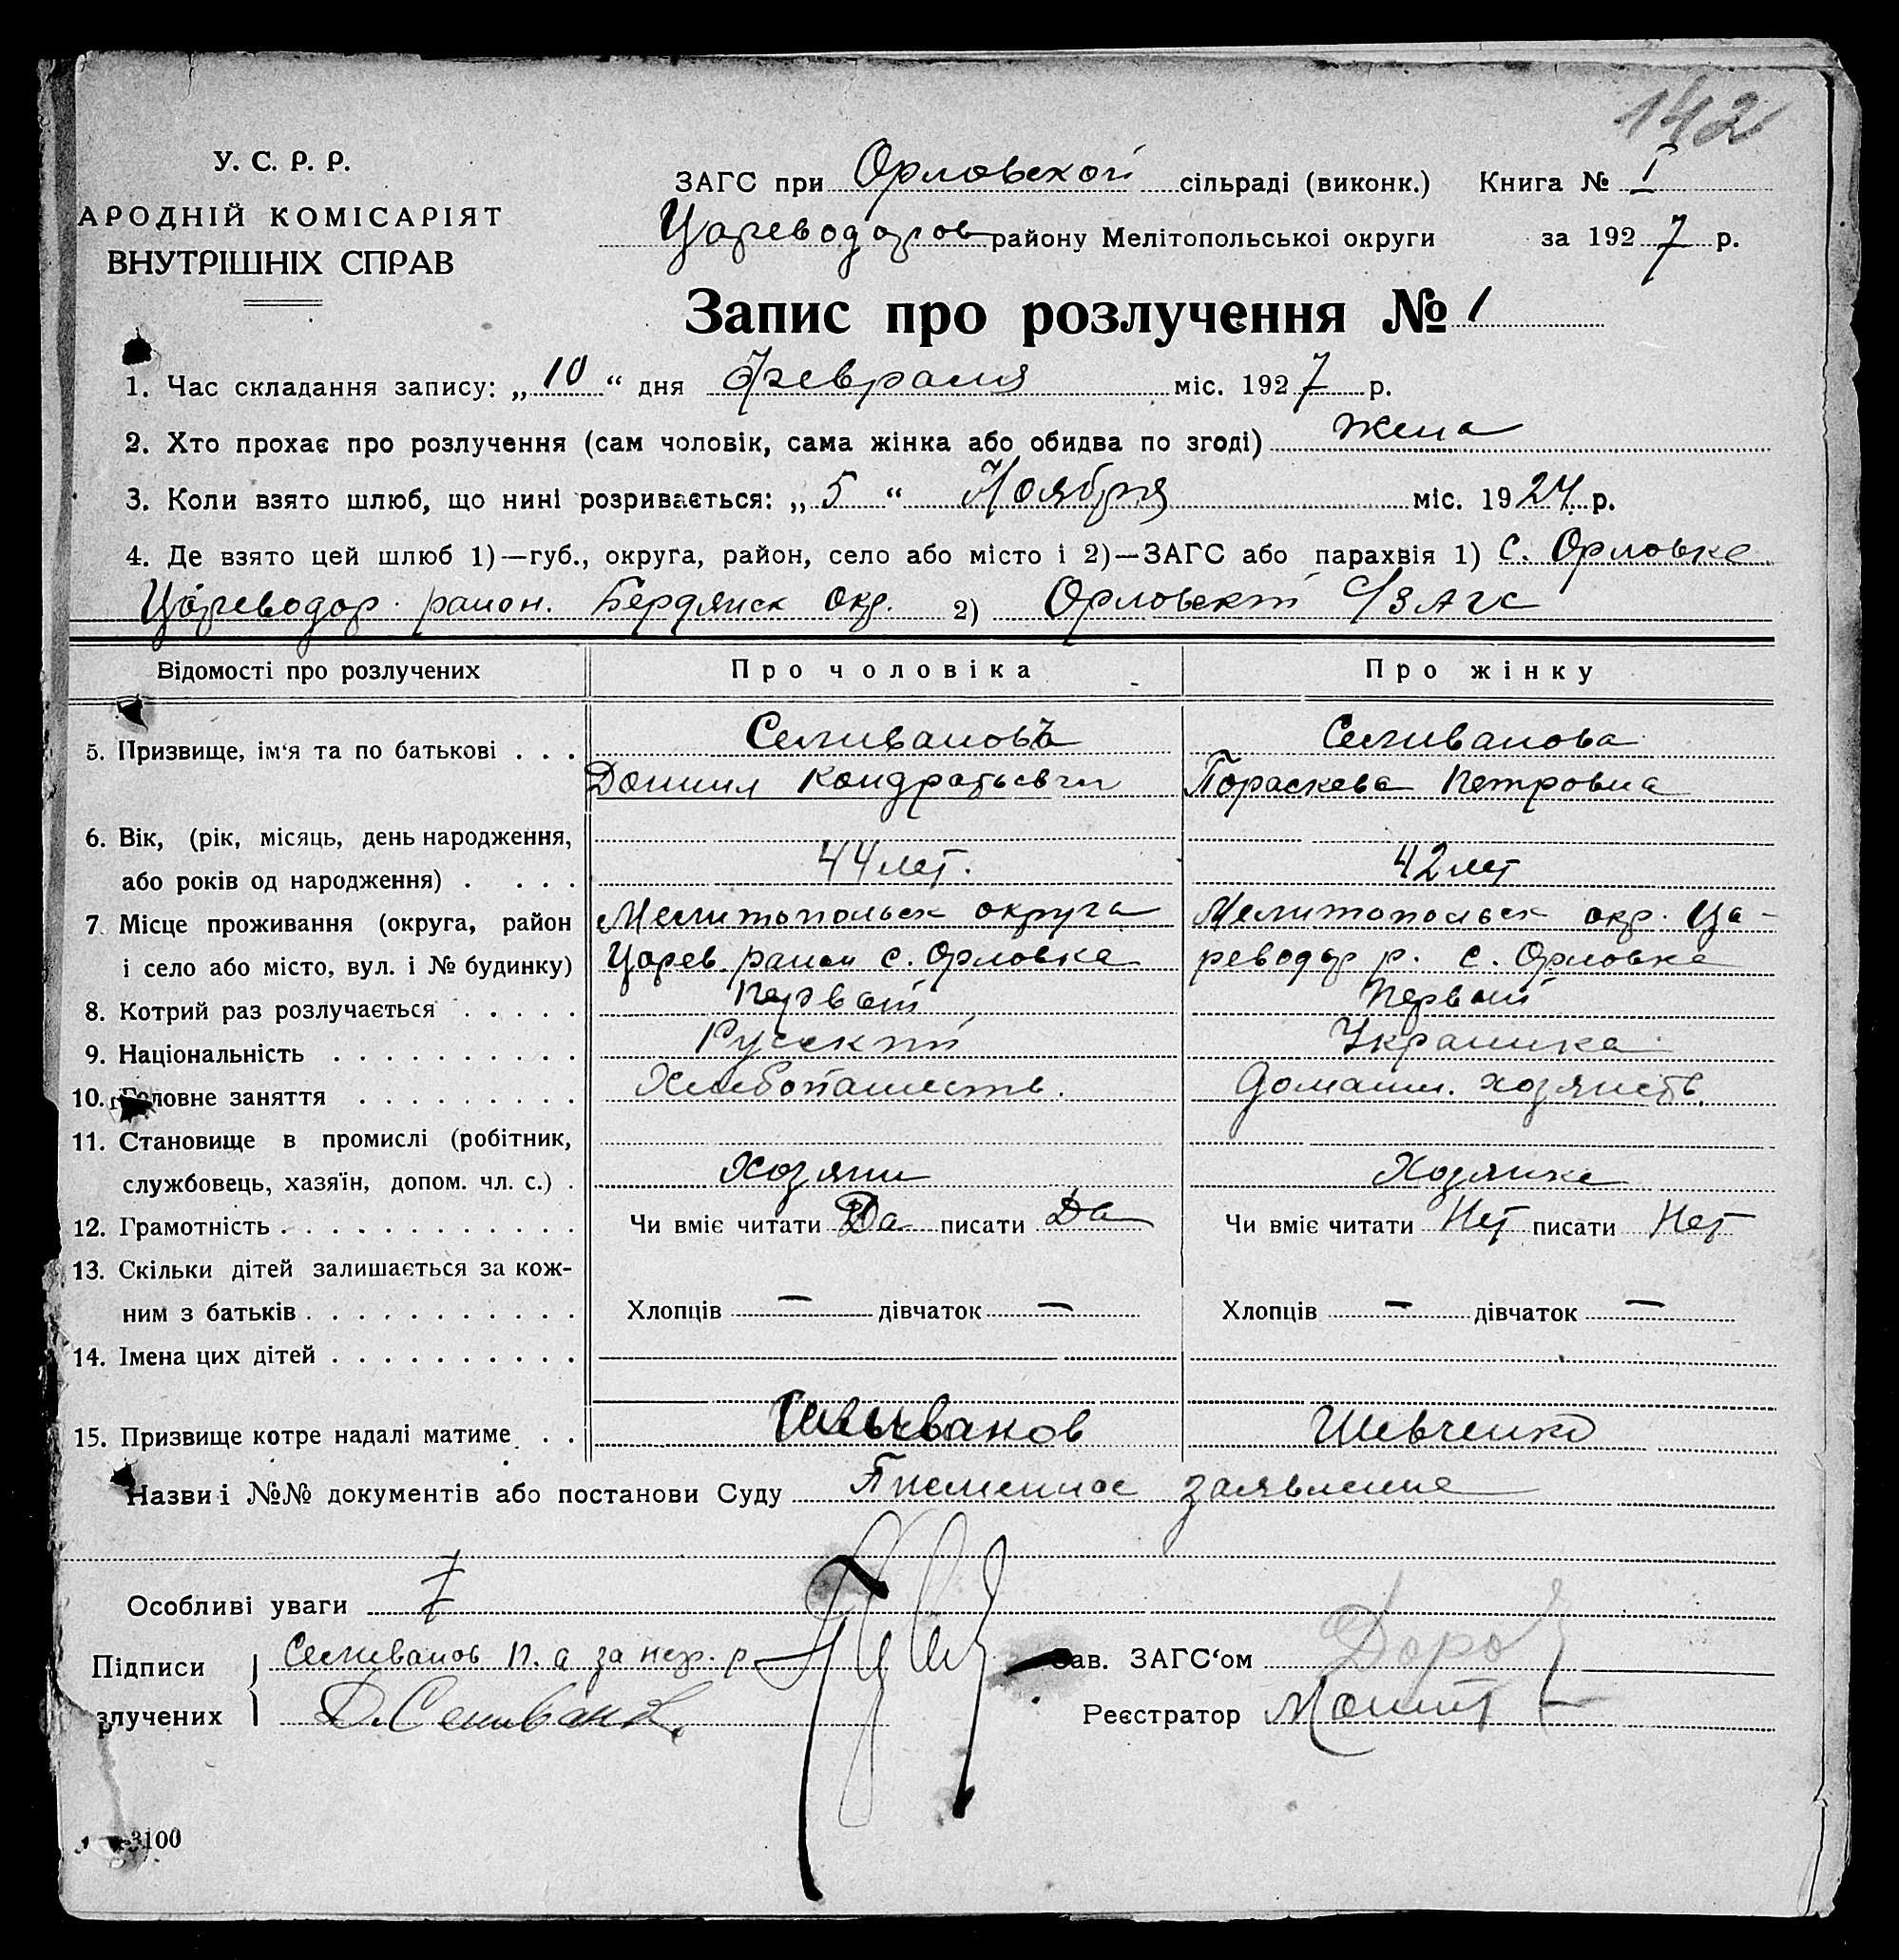 142
У. С. Р. Р.
АРОДНІЙ КОМІСАРІЯТ
ВНУТРІШНІХ СПРАВ
ЗАГС при Орловской сільраді (виконк.) Книга № I
Цареводаров району Мелітопольської округи за 1927 р.
Запис про розлучення № 1
1. Час складання запису: „10“ дня Февраля міс. 1927 р.
2. Хто прохає про розлучення (сам чоловік, сама жінка або обидва по згоді) Жена
3. Коли взято шлюб, що нині розривається: „5“ Ноября міс. 1924 р.
4. Де взято цей шлюб 1)—губ., округа, район, село або місто і 2)—ЗАГС або парахвія 1) С. Орловке
Цареводар. район. Бердянск окр. 2) Орловский С/ЗАГС
Відомості про розлучених Про чоловіка Про жінку
5. Призвище, ім'я та по батькові . . . Селиванов Селиванова
Даниил Кондратьевич Пораскева Петровна
6. Вік, (рік, місяць, день народження,
або років од народження) . . . . 44 лет. 42 лет
7. Місце проживання (округа, район Мелитопольск округа Мелитопольск окр. Ца-
і село або місто, вул. і № будинку) Царев. район с. Орловка реводар р. с. Орловка
8. Котрий раз розлучається . . . . . Первый Первый
9. Національність . . . . . . . . . . Русский Украинка
10. Головне заняття . . . . . . . . . Хлебопашеств. Домашн. хозяйств.
11. Становище в промислі (робітник,
службовець, хазяїн, допом. чл. с.) . Хозяин Хозяйка
12. Грамотність . . . . . . . . . . . . Чи вміє читати Да писати Да Чи вміє читати Нет писати Нет
13. Скільки дітей залишається за кож-
ним з батьків . . . . . . . . . . . Хлопців — дівчаток — Хлопців — дівчаток —
14. Імена цих дітей . . . . . . . . . .
15. Призвище котре надалі матиме . . Селиванов Шевченко
Назви і №№ документів або постанови Суду Писменное заявление
Особливі уваги
Підписи Селиванов П. а за нег. р Зав. ЗАГС‘ом
злучених Д. Селиванов Реєстратор
3100